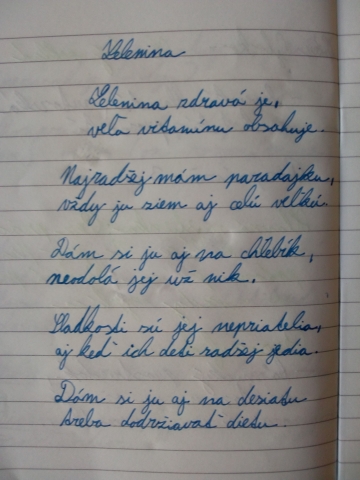 Zelenina
Zelenina zdravá je,
veľa vitamínu obsahuje.
Najradžej mám paradajku,
vždy ju ziem aj celú veľkú.
Dám si ju aj na chlebík,
neodolá jej už nik.
Sladkosti sú jej nepriatelia,
aj keď ich deti radžej jedia.
Dám si ju aj na desiatu
treba dodržiavať dietu.